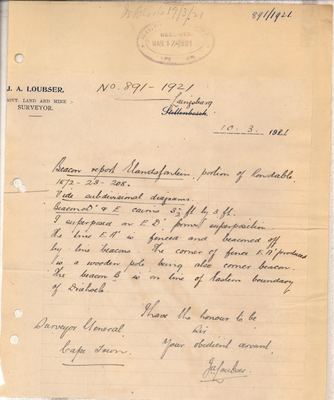 19/3/21
891/1921
No. 891-1921
J. A. LOUBSER.
GOVT. LAND AND MINE SURVEYOR.
Laingsburg
Stellenbosch
10. 3. 1921
Beacon report Elandsfontein, portion of
1872-23-208.
Vide subdivisional diagrams.
Beacons D & E cairns 3½ ft by 3 ft.
I superposed on E. D. former superposition
The line E A is fenced and beaconed off
by line beacons. The corner of fence E A produced
is a wooden pole being also corner beacon.
The beacon B is on line of Eastern boundary
of
I have the honour to be
Sir
Your obedient servant,
Surveyor General
Cape Town.
JALoubser.